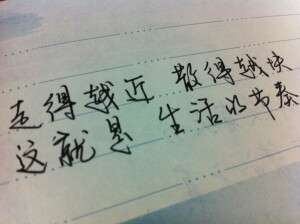 走得越近 散得越快
这就是 生活的节奏